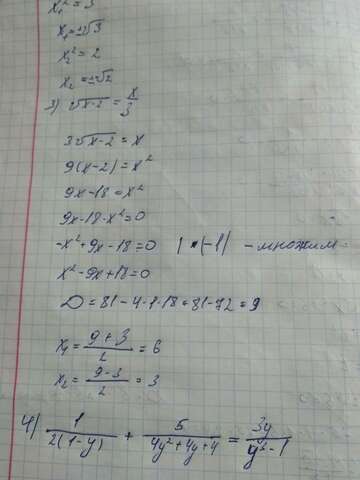 x₁² = 3
x₁ = ±√3
x₂² = 2
x₂ = ±√2
3) √x-2 = x/3
3√x-2 = x
9(x-2) = x²
9x-18 = x²
9x-18-x²=0
-x²+9x-18=0 | •(-1) - множим
x²-9x+18=0
D = 81-4·1·18 = 81-72 = 9
x₁ = (9+3)/2 = 6
x₂ = (9-3)/2 = 3
4) 1/(2(1-y)) + 5/(4y²+4y+4) = 3y/(y³-1)